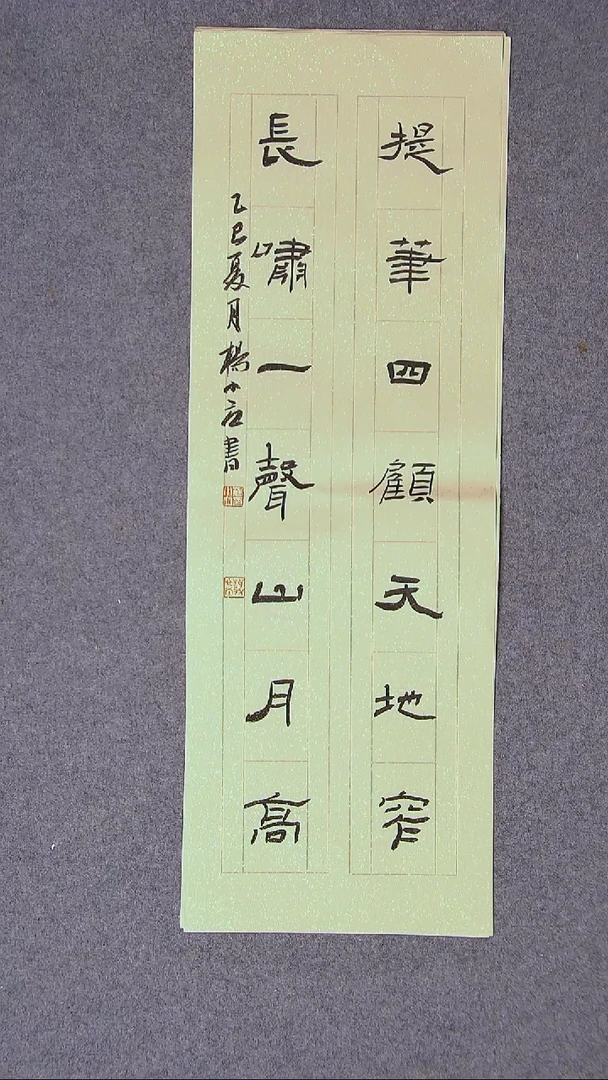 提筆四顧天地窄
長嘯一聲山月高
乙巳夏月楊小應書